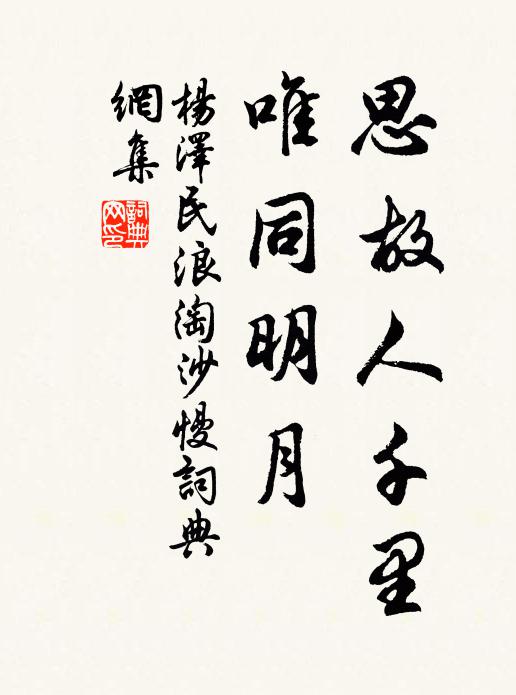 思故人千里
唯同明月
楊澤民浪淘沙慢詞典
網集
詞典網印